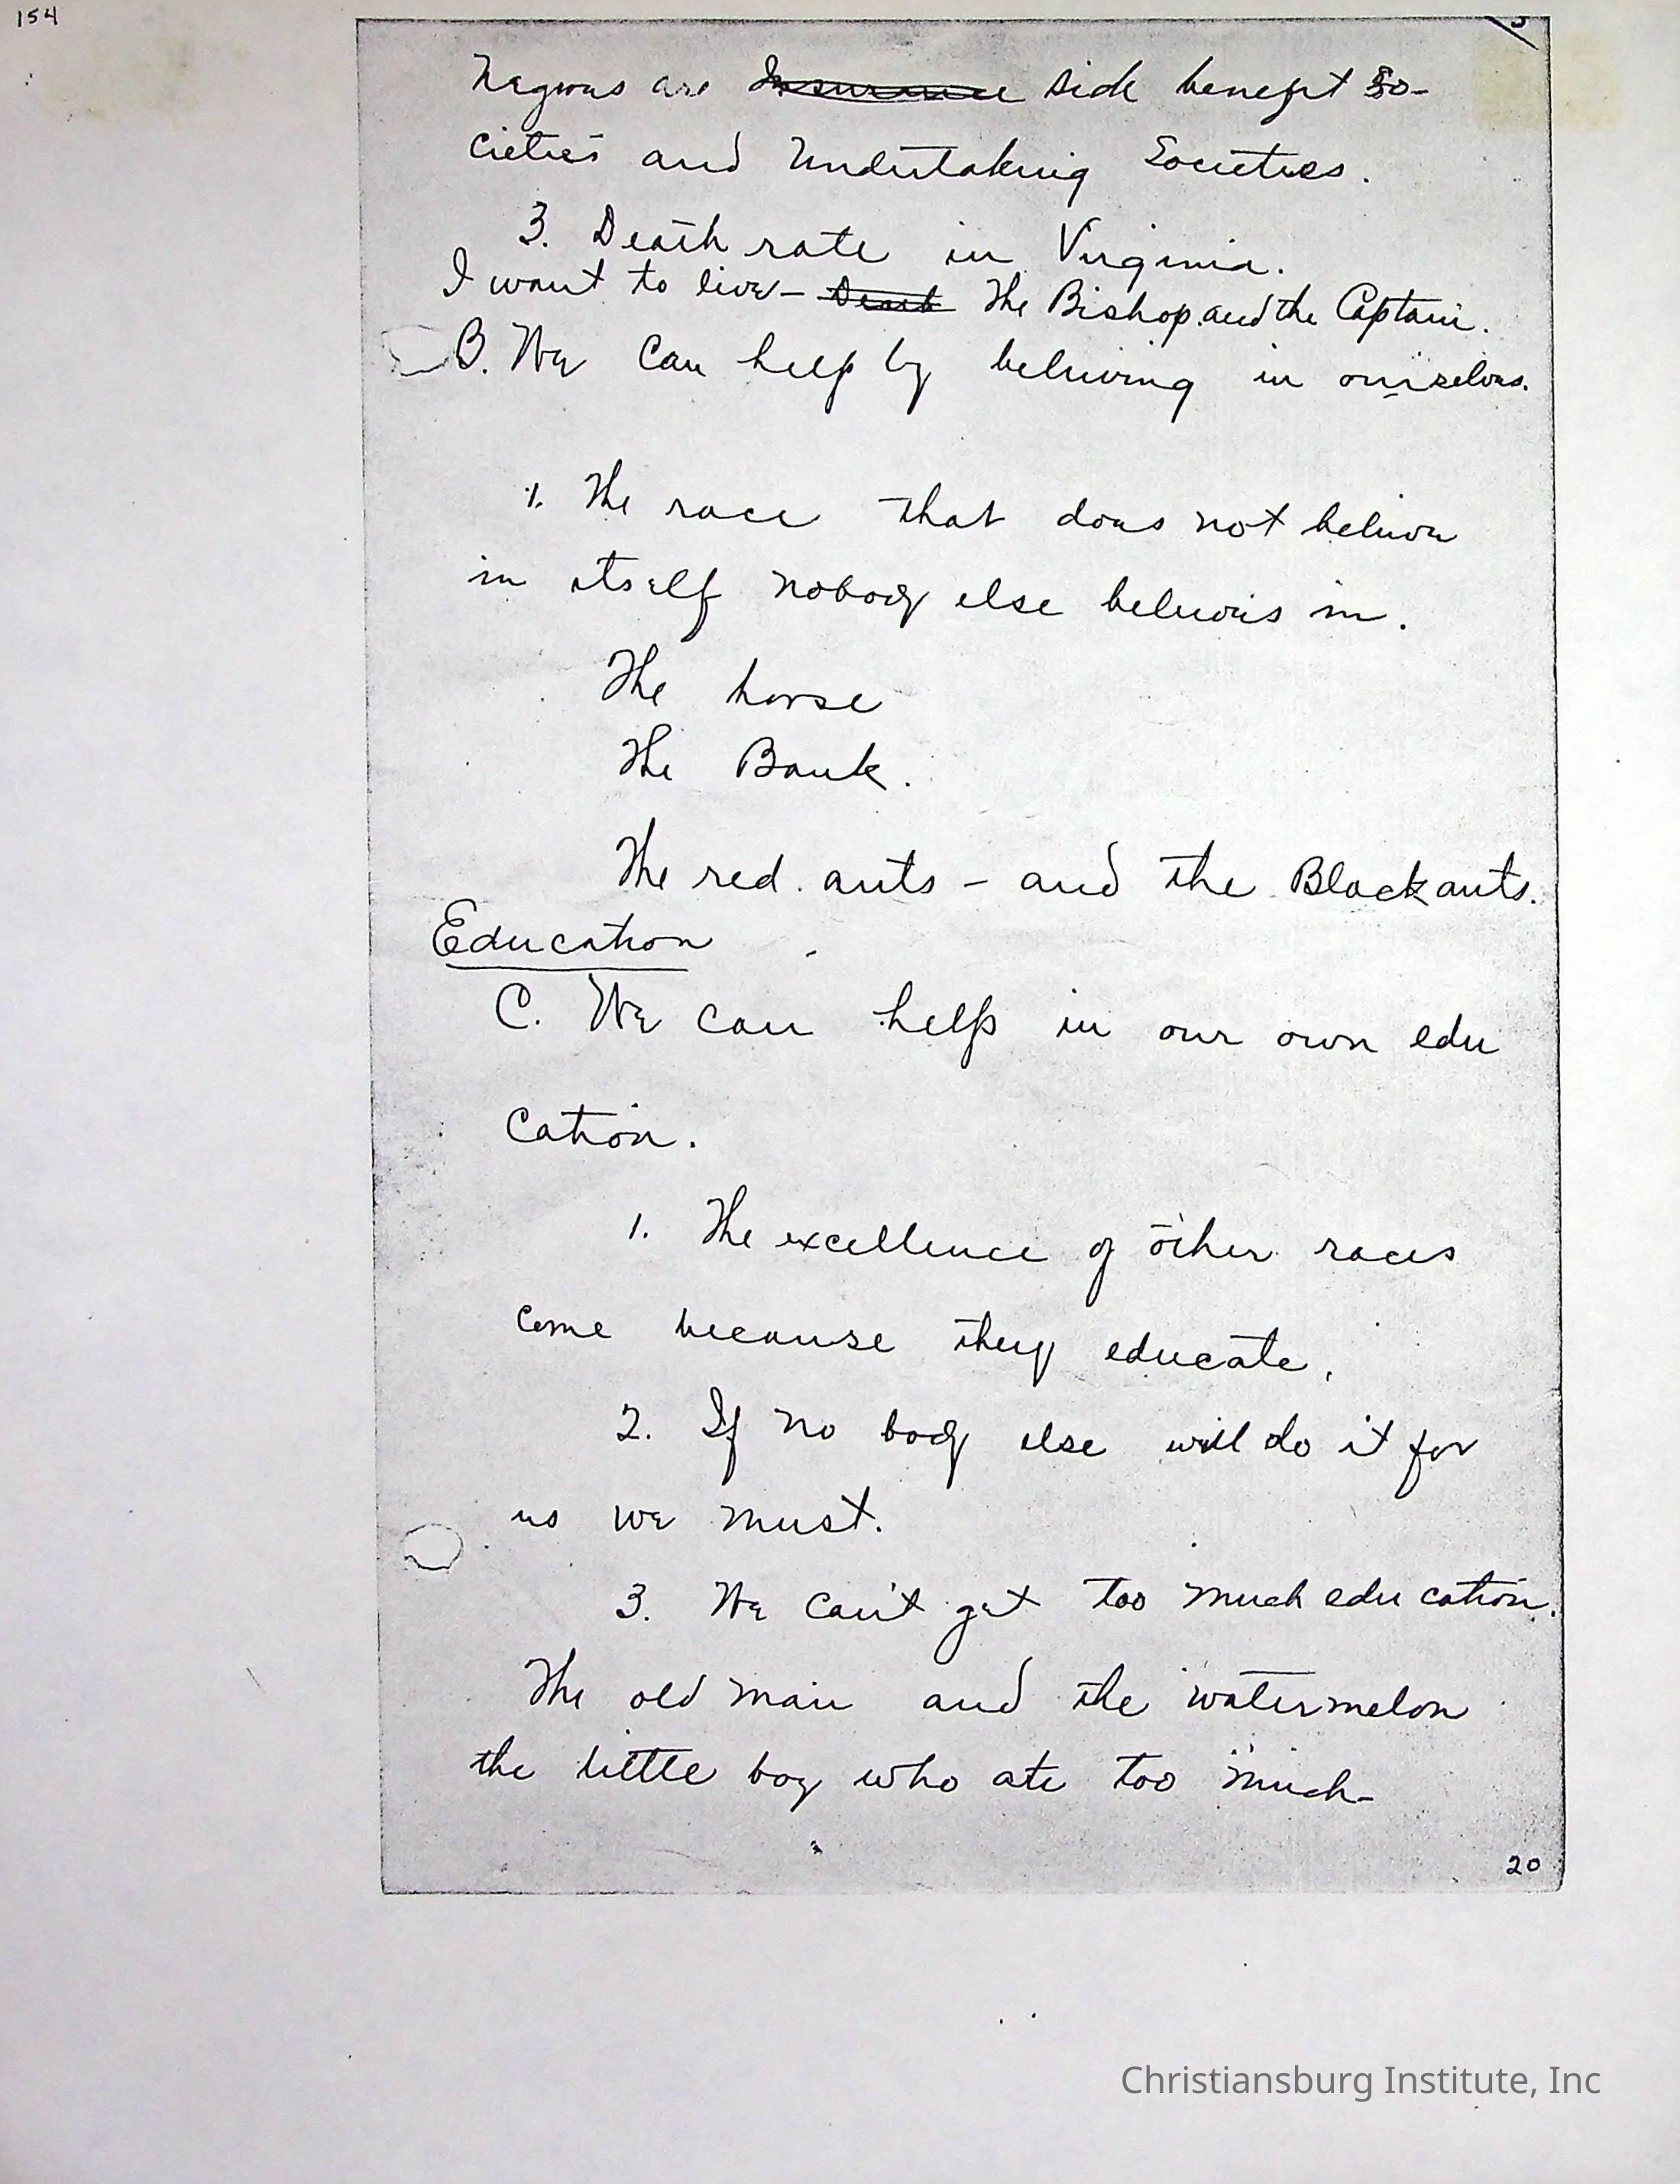 154
Negroes are ~~Insurance~~ sick benefit So-
cieties and Undertaking Societies.
3. Death rate in Virginia.
I want to live – ~~Death~~ The Bishop and the Captain.
B. We can help by believing in ourselves.
1. The race that does not believe
in itself nobody else believes in.
The horse
The Bank.
The red ants – and the Black ants.
Education
C. We can help in our own edu
cation.
1. The excellence of other races
come because they educate.
2. If no body else will do it for
us we must.
3. We can't get too much education.
The old man and the watermelon
the little boy who ate too much–
20
Christiansburg Institute, Inc